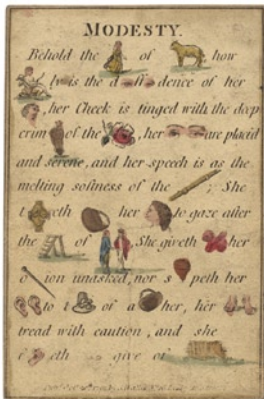 MODESTY.
Behold the of how
ly is the d ff dence of her
, her Cheek is tinged with the deep
crim of the , her are placid
and serene, and her speech is as the
melting softness of the ; She
t eth her to gaze after
the of , She giveth her
o ion unasked, nor s peth her
to t of a her, her
tread with caution, and she
eth give